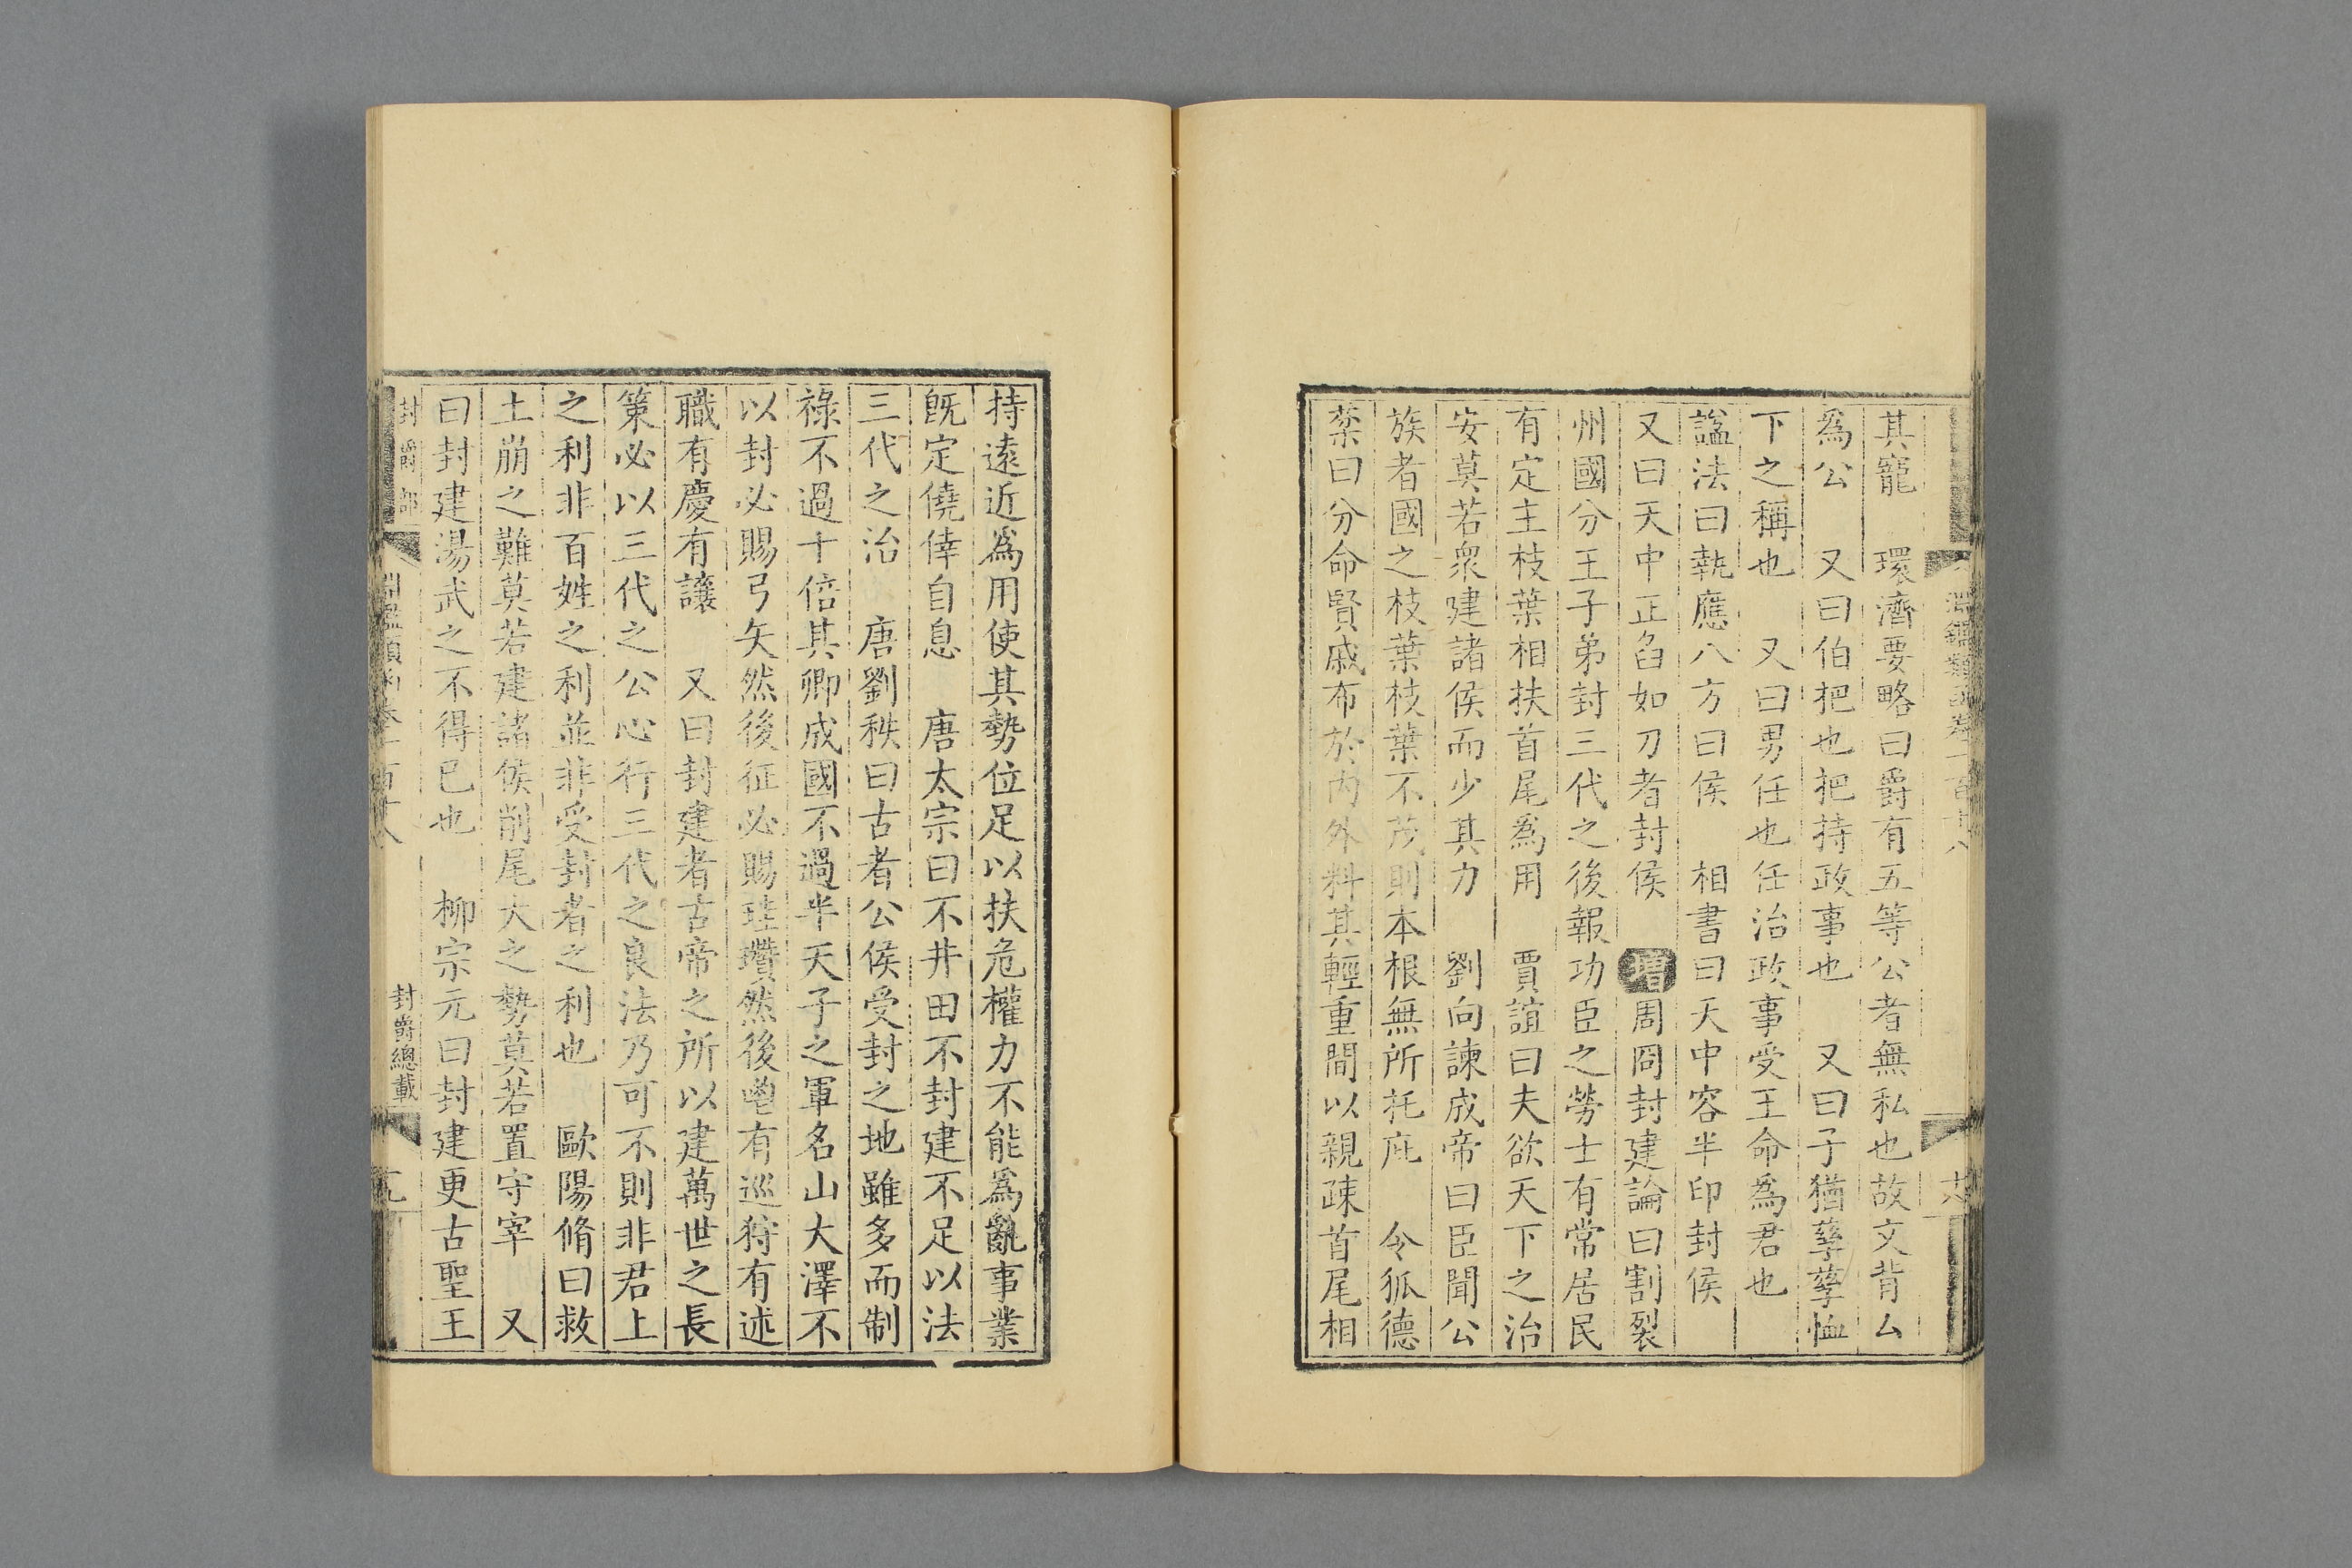 其寵　環濟要略曰爵有五等公者無私也故文背厶
爲公　又曰伯把也把持政事也　又曰子猶孳孳恤
下之稱也　又曰男任也任治政事受王命爲君也
諡法曰執應八方曰侯　相書曰天中容半印封侯
又曰天中正臽如刀者封侯　增周冏封建論曰割裂
州國分王子弟封三代之後報功臣之勞士有常居民
有定主枝葉相扶首尾爲用　賈誼曰夫欲天下之治
安莫若衆建諸侯而少其力　劉向諫成帝曰臣聞公
族者國之枝葉枝葉不茂則本根無所托庇　令狐德
棻曰分命賢戚布於內外料其輕重間以親疎首尾相
持遠近爲用使其勢位足以扶危權力不能爲亂事業
旣定僥倖自息　唐太宗曰不井田不封建不足以法
三代之治　唐劉秩曰古者公侯受封之地雖多而制
祿不過十倍其卿成國不過半天子之軍名山大澤不
以封必賜弓矢然後征必賜珪瓚然後鬯有巡狩有述
職有慶有讓　又曰封建者古帝之所以建萬世之長
策必以三代之公心行三代之良法乃可不則非君上
之利非百姓之利並非受封者之利也　歐陽脩曰救
土崩之難莫若建諸侯削尾大之勢莫若置守宰　又
曰封建湯武之不得已也　柳宗元曰封建更古聖王
封爵部　淵鑑類函卷一百十八　封爵總載